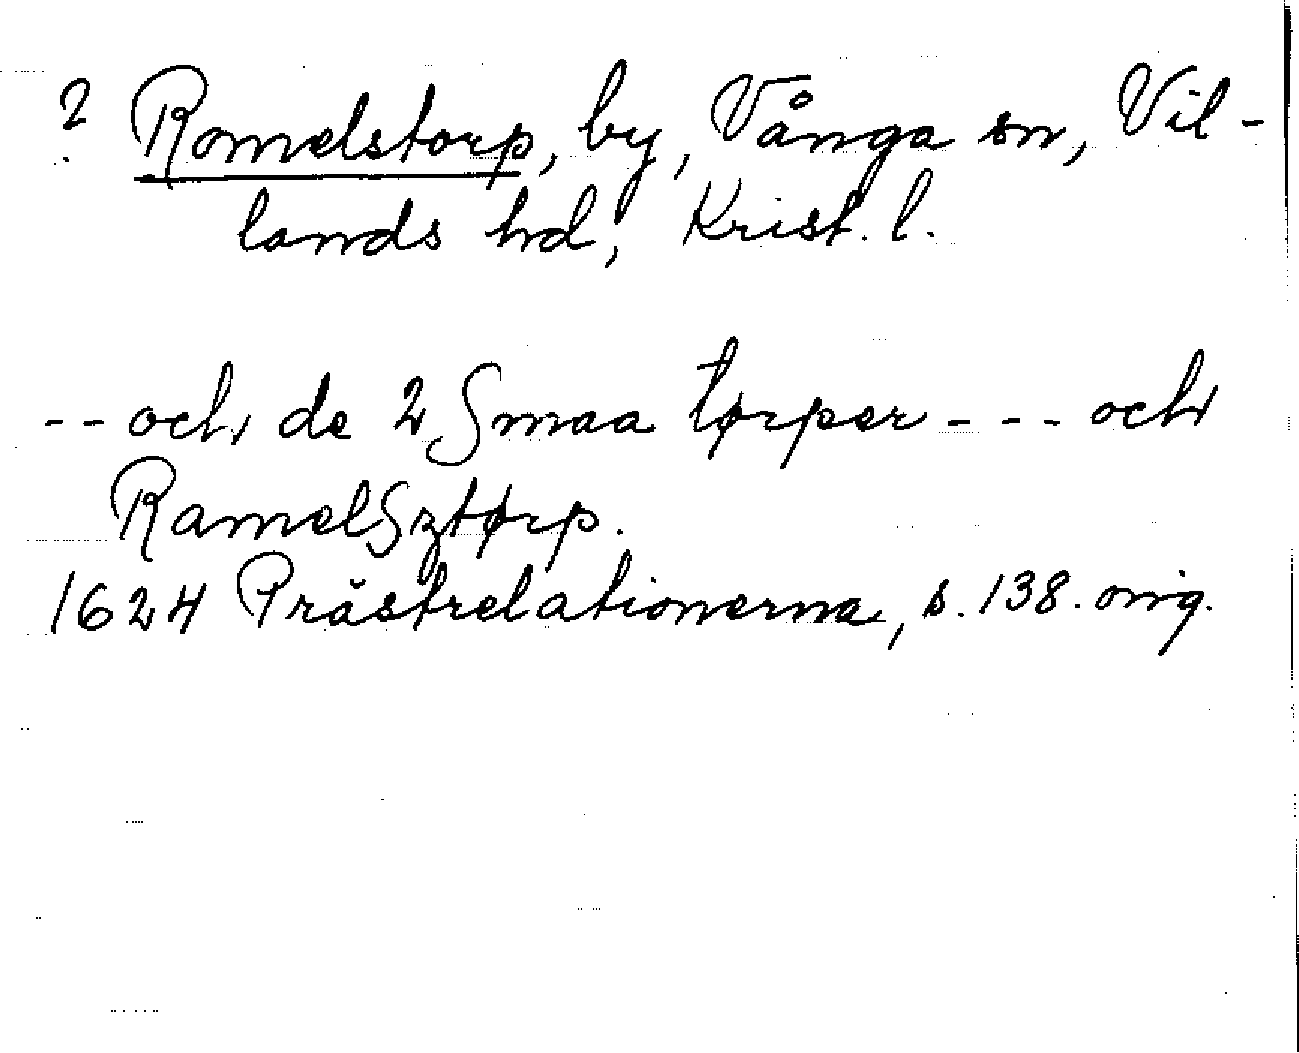 ? Romelstorp, by, Vånga sn, Vil-
lands hd, Krist. l.
-- och de 2 Smaa tørper --- och
RamelSztørp.
1624 Prästrelationerna, s. 138. orig.